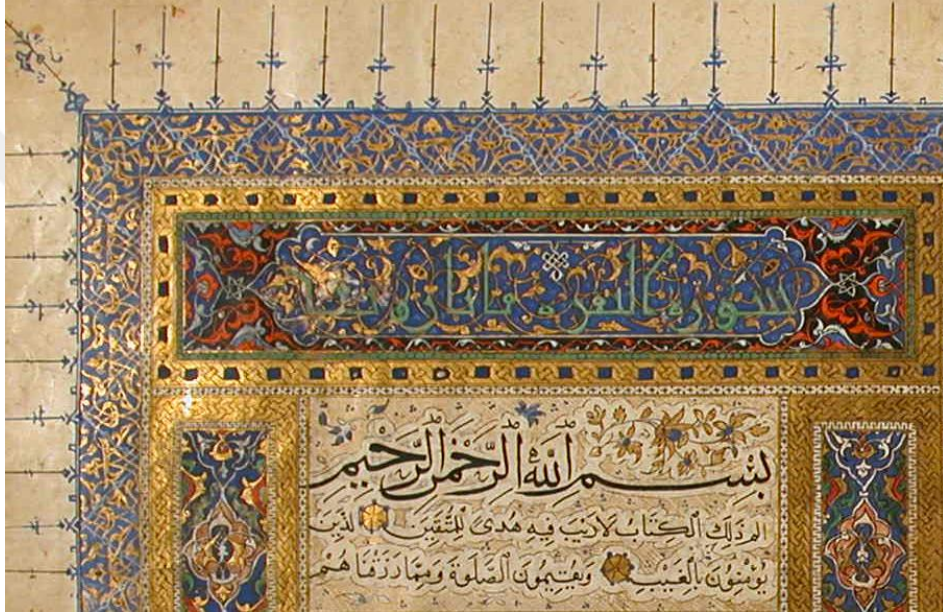 سورة البقرة مايتان و
بسم الله الرحمن الرحيم
الم ذلك الكتاب لاريب فيه هدى للمتقين الذين
يؤمنون بالغيب ويقيمون الصلوة ومما رزقناهم